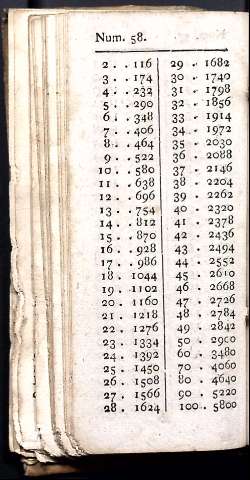 Num. 58.
2 . . 116 | 29 . 1682
3 . . 174 | 30 . 1740
4 . . 232 | 31 . 1798
5 . . 290 | 32 . 1856
6 . . 348 | 33 . 1914
7 . . 406 | 34 . 1972
8 . . 464 | 35 . 2030
9 . . 522 | 36 . 2088
10 . . 580 | 37 . 2146
11 . . 638 | 38 . 2204
12 . . 696 | 39 . 2262
13 . . 754 | 40 . 2320
14 . . 812 | 41 . 2378
15 . . 870 | 42 . 2436
16 . . 928 | 43 . 2494
17 . . 986 | 44 . 2552
18 . 1044 | 45 . 2610
19 . 1102 | 46 . 2668
20 . 1160 | 47 . 2726
21 . 1218 | 48 . 2784
22 . 1276 | 49 . 2842
23 . 1334 | 50 . 2900
24 . 1392 | 60 . 3480
25 . 1450 | 70 . 4060
26 . 1508 | 80 . 4640
27 . 1566 | 90 . 5220
28 . 1624 | 100 . 5800